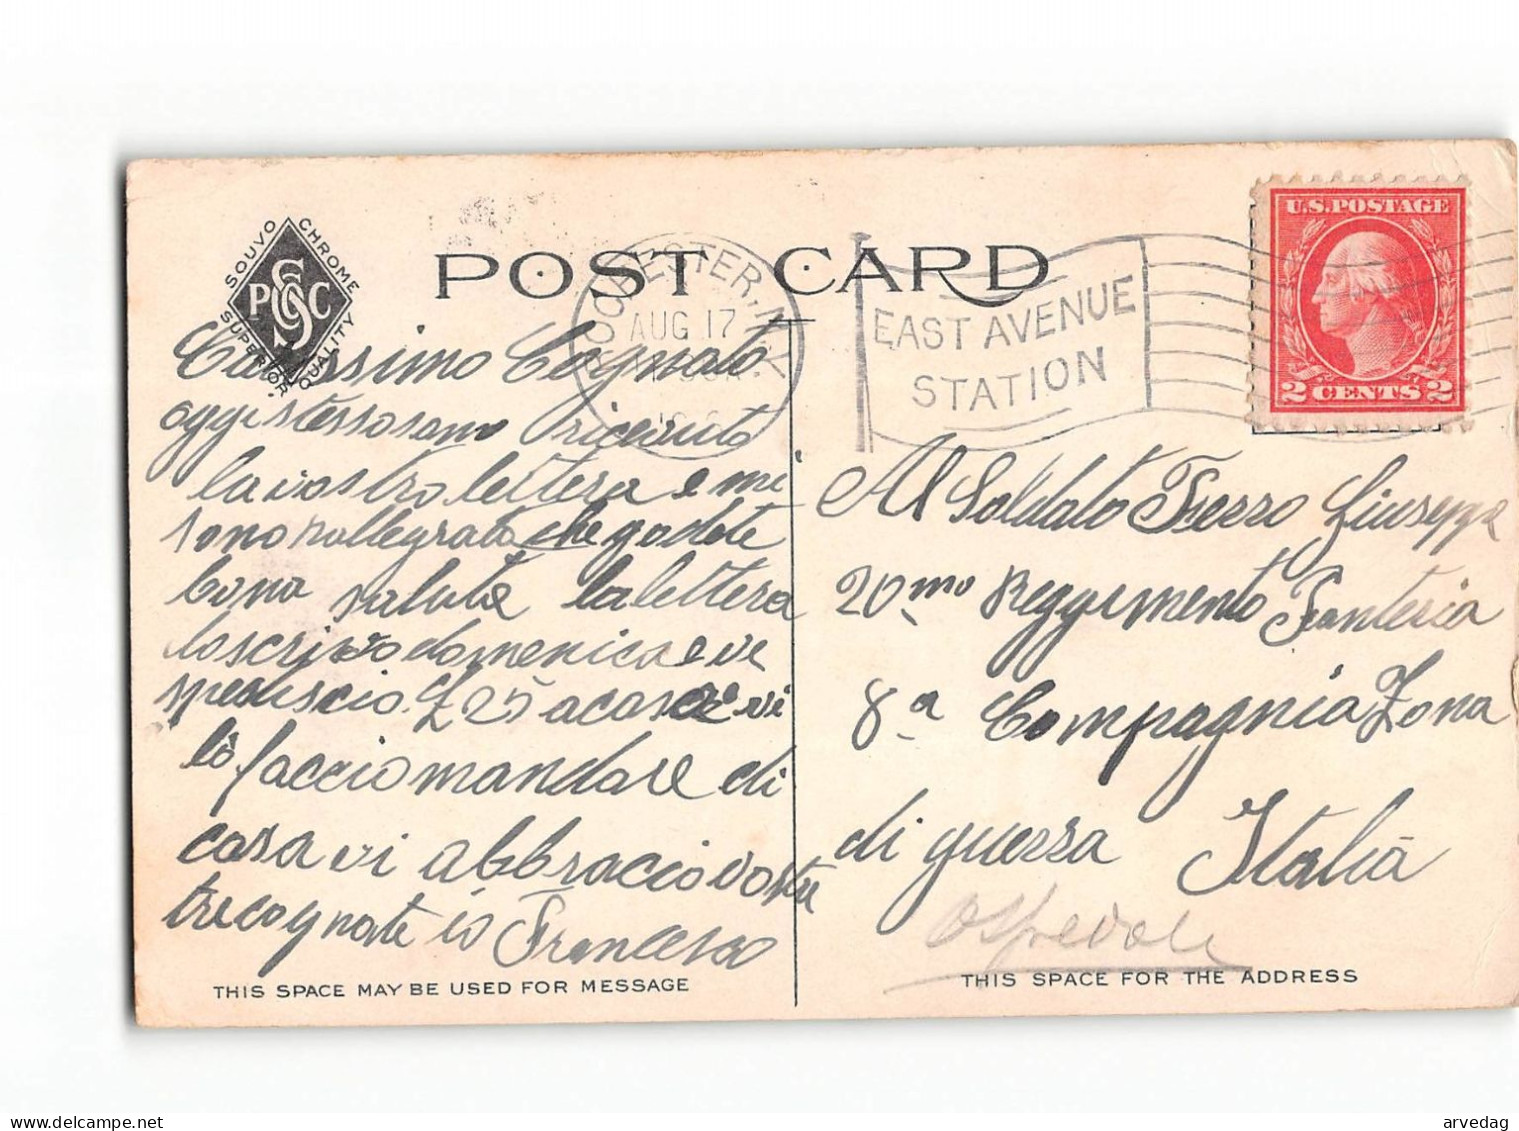 SOUVO CHROME
PSCC
SUPERIOR QUALITY
POST CARD
ROCHESTER, N.Y.
AUG 17
EAST AVENUE
STATION
U.S. POSTAGE
2 CENTS 2
Carissimo Cognato
oggi stesso sono ricevuto
la vostro lettera e mi
sono rallegrato che godete
bona salute la lettera
lo scrivo domenica e ve
spediscio £ 25 a casa e vi
lò faccio mandare di
casa vi abbraccio vostre
tre cognate io Francesco
THIS SPACE MAY BE USED FOR MESSAGE
Al Soldato Frezzo Giuseppe
20mo Reggimento Fanteria
8a Compagnia Zona
di guerra Italia
Ospedale
THIS SPACE FOR THE ADDRESS
arvedag